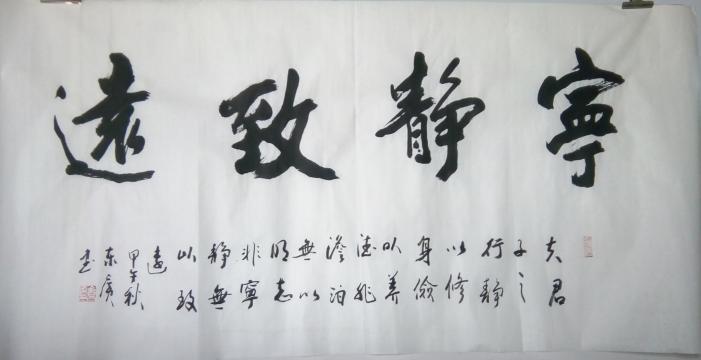 寧靜致遠
夫君
子之
行靜
以修
身儉
以養
德非
澹泊
無以
明志
非寧
靜無
以致
遠
甲午秋
东
书